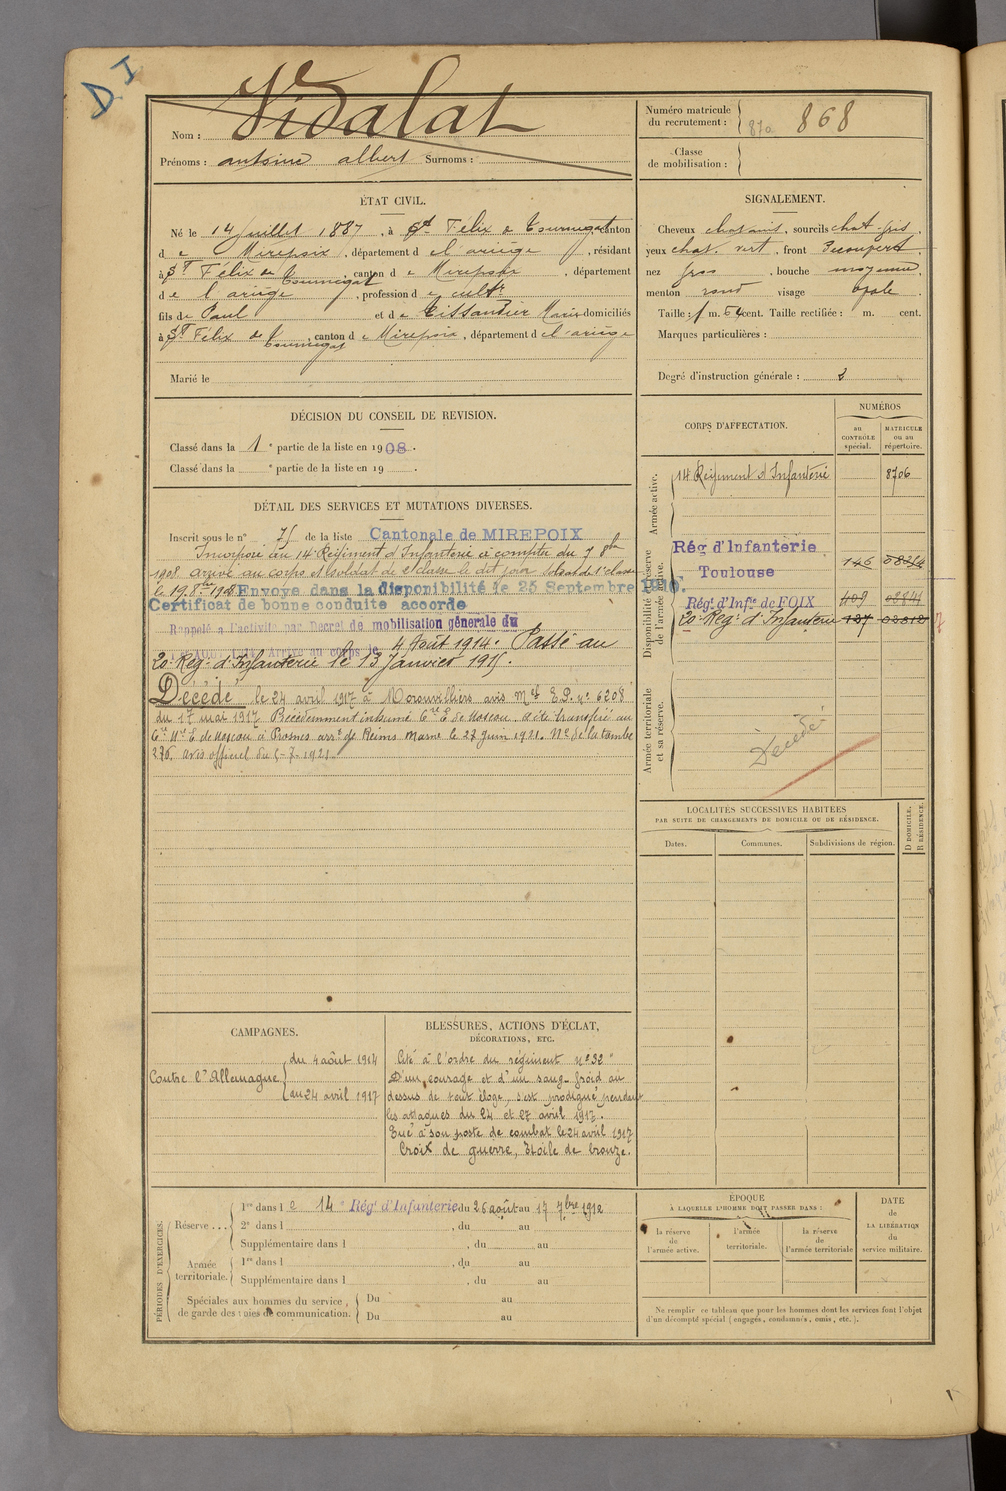 D. I
Nom : Vidalat
Prénoms : antoine albert Surnoms :
Numéro matricule
du recrutement : 868
Classe
de mobilisation :
ÉTAT CIVIL.
Né le 14 juillet 1887, à St Félix de Tournegat canton
d e Mirepoix, département d e l'ariège, résidant
à St Félix de Tournegat, canton d e Mirepoix, département
d e l'ariège, profession d e cultr
fils de Paul et d e Tissandier Marie domiciliés
à St Félix de Tournegat, canton d e Mirepoix, département d e l'ariège
Marié le
SIGNALEMENT.
Cheveux chatains, sourcils chat-gris,
yeux chat. vert, front Découvert,
nez gros, bouche moyenne,
menton rond visage ovale.
Taille : 1 m. 64 cent. Taille rectifiée : m. cent.
Marques particulières :
Degré d'instruction générale : 2
DÉCISION DU CONSEIL DE REVISION.
Classé dans la 1e partie de la liste en 1908.
Classé dans la e partie de la liste en 19 .
CORPS D'AFFECTATION.
NUMÉROS
au
CONTRÔLE
spécial.
MATRICULE
ou au
répertoire.
Armée active.
14 Régiment d'Infanterie 8706
Disponibilité et réserve
de l'armée active.
Rég d'Infanterie
Toulouse 146
Régt d'Infie de FOIX 409
20e Régt d'Infanterie 127
Armée territoriale
et sa réserve.
Décédé
DÉTAIL DES SERVICES ET MUTATIONS DIVERSES.
Inscrit sous le n° 75 de la liste Cantonale de MIREPOIX
Incorporé au 14e Régiment d'Infanterie à compter du 7 8bre
1908 arrivé au corps et soldat de 2e classe le dit jour. soldat de 1e classe
le Envoyé dans la disponibilité le 25 Septembre 1910.
Certificat de bonne conduite accordé
Rappelé à l'activité par Décret de mobilisation générale du
1er AOUT 1914. Arrivé au corps le 4 Août 1914. Passé au
20e Régt d'Infanterie le 13 Janvier 1915.
Décédé le 24 avril 1917 à Moronvilliers avis Mel E.P. n° 6208
du 17 mai 1917. Précédemment inhumé Cre E de Moscou a été transféré au
Cre Mre E de Moscou à Prosnes arrt de Reims Marne le 27 juin 1921. N° de la tombe
276. avis officiel du 5-7-1921.
LOCALITÉS SUCCESSIVES HABITÉES
PAR SUITE DE CHANGEMENTS DE DOMICILE OU DE RÉSIDENCE.
Dates. Communes. Subdivisions de région. D DOMICILE. R RÉSIDENCE.
CAMPAGNES.
Contre l'Allemagne
du 4 août 1914
au 24 avril 1917
BLESSURES, ACTIONS D'ÉCLAT,
DÉCORATIONS, ETC.
Cité à l'ordre du régiment n° 32 "
D'un courage et d'un sang-froid au
dessus de tout éloge, s'est prodigué pendant
les attaques du 24 et 27 avril 1917.
Tué à son poste de combat le 24 avril 1917
Croix de guerre, Etoile de bronze.
PÉRIODES D'EXERCICES.
Réserve...
1re dans l e 14e Régt d'Infanterie du 26 août au 17 7bre 1912
2e dans l , du au
Supplémentaire dans l , du au
Armée
territoriale.
1re dans l , du au
Supplémentaire dans l , du au
Spéciales aux hommes du service
de garde des voies de communication.
Du au
Du au
ÉPOQUE
À LAQUELLE L'HOMME DOIT PASSER DANS :
la réserve
de
l'armée active.
l'armée
territoriale.
la réserve
de
l'armée territoriale
DATE
DE
LA LIBÉRATION
du
service militaire.
Ne remplir ce tableau que pour les hommes dont les services font l'objet
d'un décompte spécial (engagés, condamnés, omis, etc.).